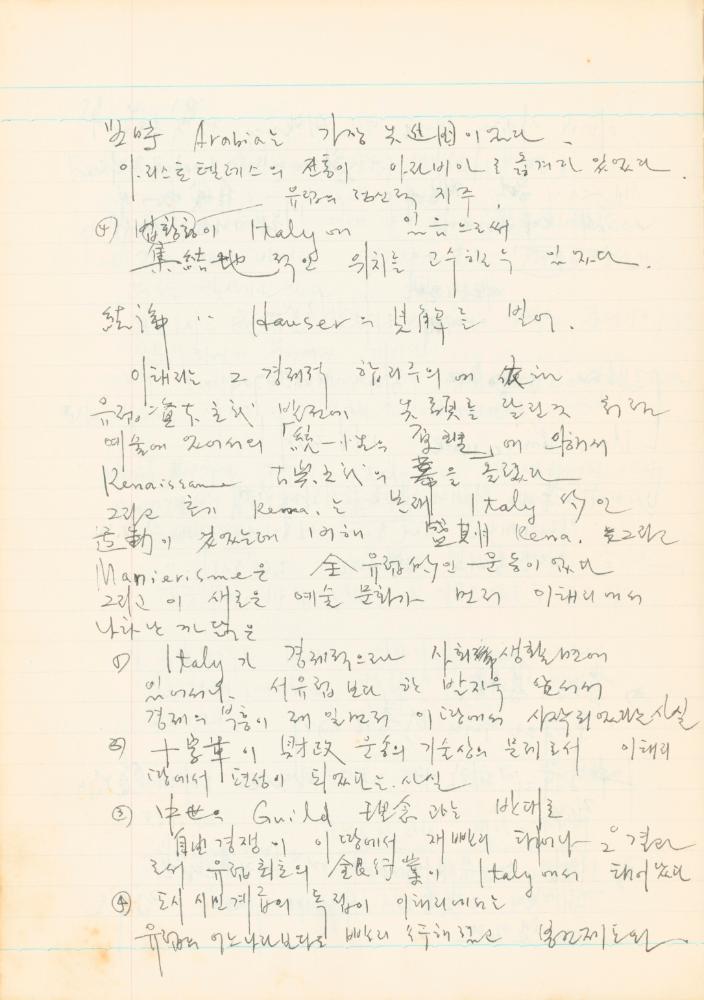 当時 Arabia는 가장 先進国이였다.
아리스토텔레스의 전통이 아라비아로 옮겨가 있었다.
유럽의 정신적 지주
④ 법황청이 Italy에 있음으로써
集結地적인 위치를 고수할 수 있었다.
結論 Hauser의 見解를 빌어.
이태리는 그 경제적 합리주의에 依해
유럽 資本主義 발전에
예술에 있어서의 「統一性의 原理」에 의해서
Renaissance 古典主義의 幕을 올렸다
그리고 초기 Rena.는 본래 Italy的인
運動이 였었는데 비해 盛期 Rena. 그리고
Manierisme은 全유럽的인 운동이 였다
그리고 이 새로운 예술 문화가 먼저 이태리에서
나타난 까닭은
① Italy가 경제적으로나 사회생활면에
있어서나 서유럽보다 한 발자욱 앞서서
경제의 부흥이 제일먼저 이땅에서 시작되었다는 사실
② 十字軍이 財政 운송의 기술상의 문제로서 이태리
땅에서 편성이 되었다는 사실
③ 中世의 Guild 理念과는 반대로
自由경쟁이 이 땅에서 재빨리 타이나 그 결과
로서 유럽최초의 銀行業이 Italy에서 태어났다
④ 도시 시민계급의 독립이 이태리에서는
유럽의 어느나라보다도 빨리 수행했고 봉건제도와